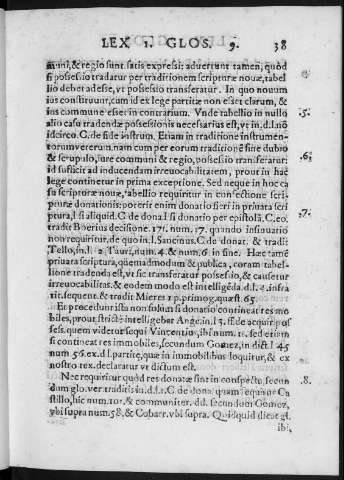 LEX I. GLOS. 9. 38
muni, & regio sunt satis expressi: advertunt tamen, quòd
si possessio tradatur per traditionem scripturæ nouæ, tabel
lio debet adesse, vt possessio transferatur. In quo nouum
ius constituunt, cum id ex lege partitæ non esset clarum, &
ius commune esset in contrarium. Vnde tabellio in nullo
alio casu tradendæ possessionis necessarius est, vt in.d.l.an
idcirco.C.de fide instrum. Etiam in traditione instrumen-
torum veterum. nam cum per eorum traditionẽ sine dubio
& scrupulo, iure communi & regio, possessio transferatur:
id sufficit ad inducendam irreuocabilitatem, prout in hac
lege continetur in prima exceptione. Sed neque in hoc ca
su scripturæ nouæ, tabellio requiritur in confectione scri-
pturæ donationis: poterit enim donatio fieri in priuata scri
ptura, l si aliquid. C de dona.l si donatio per epistolã. C. eo.
tradit Boerius decisione. 171. num. 17. quando insinuatio
non requiritur. de quo in.l. Sancimus. C de donat. & tradit
Tello, in.l. 2 Tauri, num 4. & num. 6. in fine. Hæc tamẽ
priuata scriptura, quemadmodum & publica, coram tabel-
lione tradenda est, vt sic transferatur possessio, & causetur
irreuocabilitas. & eodem modo est intelligẽda.d.l.4. infra
tit. sequent. & tradit Mieres 1 p. primog. quæst. 65.
Et procedunt ista non solùm si donatio contineat res mo
biles, prout strictè intelligebat Ange. in l 3. ff. de acquir. pos
sess. quem videtur sequi Vincentius, ibi num. 11. sed etiam
si contineat res immobiles, secundum Gomez, in dict l 45
num 56. ex.d l. partitæ, quæ in immobilibus loquitur, & ex
nostro tex. declaratur vt dictum est.
Nec requiritur quòd res donatæ sint in conspectu, secun
dum glo. ver traditis in.d.l.1. C de dona. quam sequitur Ca
stillo, hic num. 101. & communiter. dd. secundum Gomez,
vbi supra num. 58, & Cobarr. vbi supra. Quidquid dicat gl.
ibi,
.5.
.6.
.7.
.8.